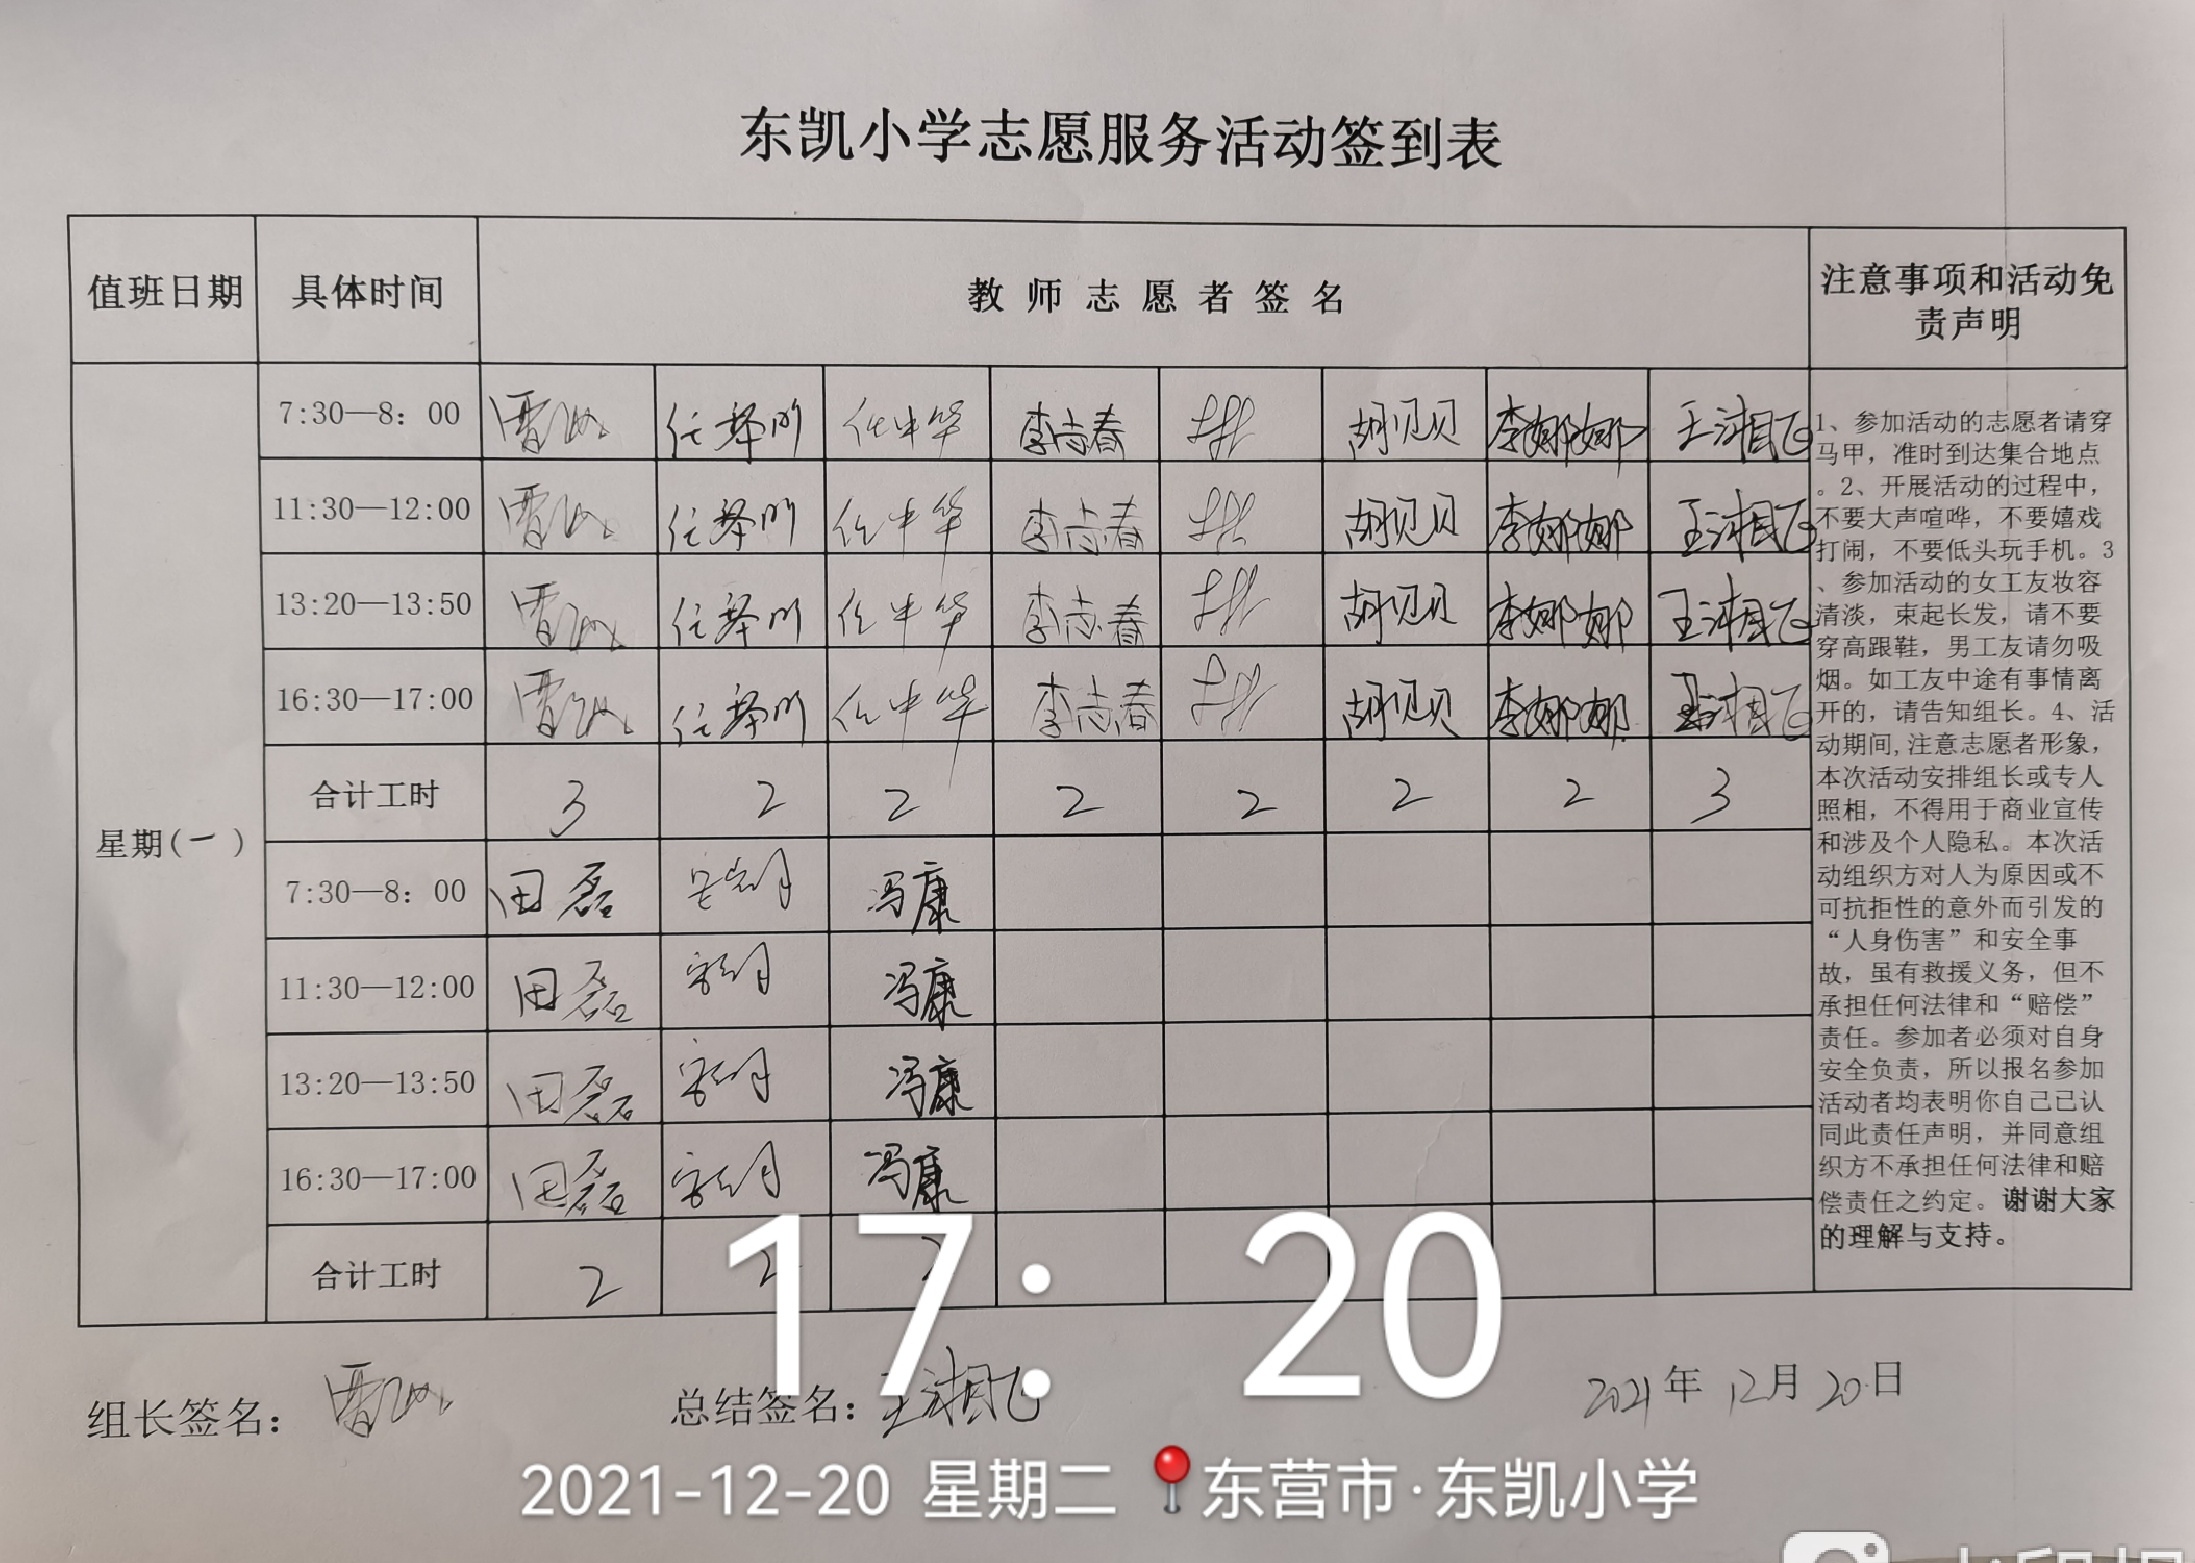 东凯小学志愿服务活动签到表
值班日期 具体时间 教师志愿者签名 注意事项和活动免
责声明
7:30—8：00 任中华 李志春 胡贝贝 李娜娜 王湘飞
11:30—12:00 任中华 李志春 胡贝贝 李娜娜 王湘飞
13:20—13:50 任中华 李志春 胡贝贝 李娜娜 王湘飞
16:30—17:00 任中华 李志春 胡贝贝 李娜娜 王湘飞
合计工时 3 2 2 2 2 2 2 3
星期(一)
7:30—8：00 田磊 冯康
11:30—12:00 田磊 冯康
13:20—13:50 田磊 冯康
16:30—17:00 田磊 冯康
合计工时 2 2 2
1、参加活动的志愿者请穿
马甲，准时到达集合地点
。2、开展活动的过程中，
不要大声喧哗，不要嬉戏
打闹，不要低头玩手机。3
、参加活动的女工友妆容
清淡，束起长发，请不要
穿高跟鞋，男工友请勿吸
烟。如工友中途有事情离
开的，请告知组长。4、活
动期间,注意志愿者形象，
本次活动安排组长或专人
照相，不得用于商业宣传
和涉及个人隐私。本次活
动组织方对人为原因或不
可抗拒性的意外而引发的
“人身伤害”和安全事
故，虽有救援义务，但不
承担任何法律和“赔偿”
责任。参加者必须对自身
安全负责，所以报名参加
活动者均表明你自己已认
同此责任声明，并同意组
织方不承担任何法律和赔
偿责任之约定。谢谢大家
的理解与支持。
17：20
组长签名： 总结签名：王湘飞 2021年12月20日
2021-12-20 星期二 东营市·东凯小学